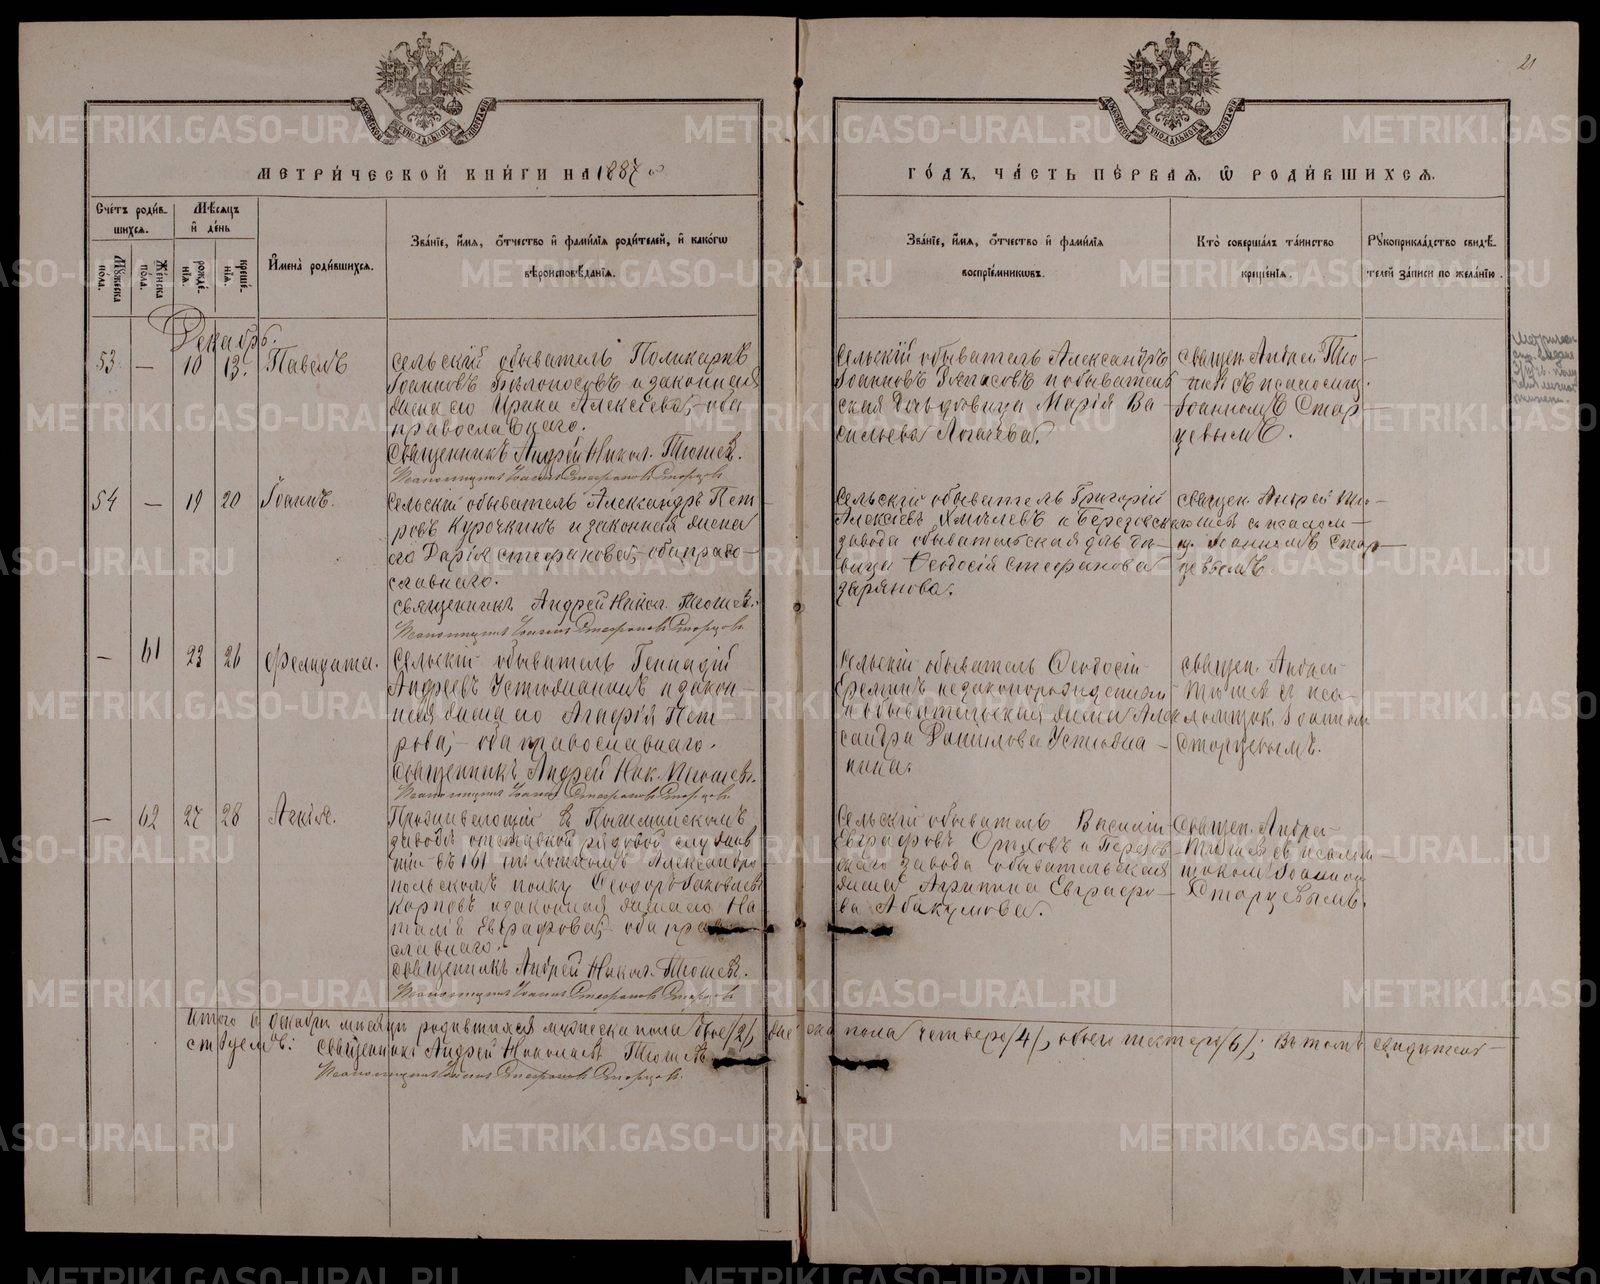 21
МЕТРИ́ЧЕСКОЙ КНИ́ГИ НА 1887
ГО́ДЪ, ЧА́СТЬ ПЕ́РВАЯ, Ѡ РОДИ́ВШИХСЯ.
Сче́тъ роди́вшихся.
Мужеска пола.
Же́нска по́ла.
Мѣсяцъ и де́нь
рожде́нія.
креще́нія.
И҆мена̀ роди́вшихся.
Зва́ніе, и҆́мя, о҆́тчество и҆ фами́лія роди́телей, и҆ како́гѡ
вѣроисповѣ́данія.
Зва́ніе, и҆́мя, о҆́тчество и҆ фами́лія
воспріе́мниковъ.
Кто̀ соверша́лъ та́инство
креще́нія.
Рукоприкла́дство свидѣ́телей за́писи по жела́нію.
Декабрь.
53 — 10 13. Павелъ
сельскій обыватель Поликарпъ
Іоанновъ Бѣлоносовъ и законная
жена его Ирина Алексѣева, оба
православнаго.
Священникъ Андрей Никол. Тюшев.
Псаломщикъ Іоаннъ Стефановъ Старцовъ
сельскій обыватель Александръ
Іоанновъ и обыватель
ская дѣвица Марія Ва
сильева Логачева.
священ. Андрей Тю
шевъ съ псаломщ.
Іоанномъ Стар
цевымъ.
54 — 19 20 Іоаннъ.
Сельскій обыватель Александръ Пет
ровъ Курочкинъ и законная жена
его Дарія Стефанова, оба право
славнаго.
священникъ Андрей Никол. Тюшев.
Псаломщикъ Іоаннъ Стефановъ Старцовъ
сельскій обыватель Григорій
Алексѣевъ и Березовскаго
завода обывательская дѣвица Ѳеодосія Стефанова
священ. Андрей Тю
шевъ съ псалом
щ. Іоанномъ Стар
цевымъ.
— 61 23 26 Фелицата.
Сельскій обыватель Геннадій
Андреевъ Устюжанинъ и закон
ная жена его Агнрія Пет
рова, оба православнаго.
Священникъ Андрей Ник. Тюшевъ.
Псаломщикъ Іоаннъ Стефановъ Старцовъ
Сельскій обыватель Ѳеодосій
и обывательская жена Алек
сандра Данилова Устюжа
нина.
священ. Андрей
Тюшевъ съ пса
ломщик. Іоанном
Старцевымъ.
— 62 27 28
Проживающій въ Пышминскомъ
заводѣ отставной рядовой служив
шій въ 161 пѣхотномъ Александро
польскомъ полку Ѳеодоръ Іаковлевъ
Карповъ и законная жена его На
талія Евграфова, оба право
славнаго.
Священникъ Андрей Никол. Тюшев.
Псаломщикъ Іоаннъ Стефановъ Старцовъ
Сельскій обыватель Василій
Евграфовъ и Березов
скаго завода обывательская
жена Агрипина Евграфо
ва Абакумова.
Священ. Андрей
Тюшевъ съ псалом
щиком Іоанном
Старцевымъ.
Итого въ декабрѣ мѣсяцѣ родившихся мужеска пола двое /2/, женска пола четверо /4/, обоего шестеро /6/; Въ томъ свидѣтель
ствуемъ: Священникъ Андрей Николаевъ Тюшевъ
Псаломщикъ Іоаннъ Стефановъ Старцовъ.